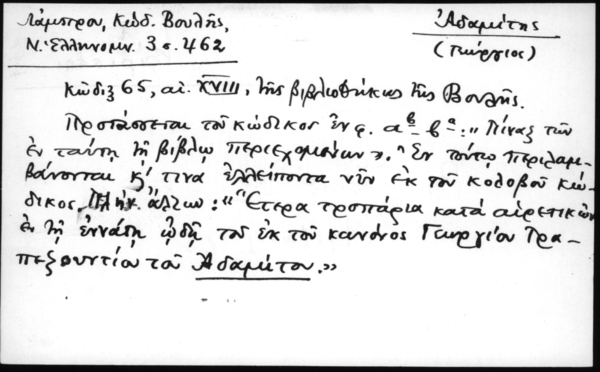 Λάμπρου, Κώδ. Βουλῆς,
Ν. Ἑλληνομν. 3 σ. 462
Ἀδαμίτης
(Γεώργιος)
Κῶδιξ 65, αἰ. XVIII, τῆς βιβλιοθήκης τῆς Βουλῆς.
Προτάσσεται τοῦ κώδικος ἐν φ. αβ–βα: "Πίναξ τῶν
ἐν ταύτῃ τῇ βίβλῳ περιεχομένων». Ἐν τούτῳ περιλαμ-
βάνονται κ' τινα ἐλλείποντα νῦν ἐκ τοῦ κολοβοῦ κώ-
δικος. Πλὴν ἄλλων: «Ἕτερα τροπάρια κατὰ αἱρετικῶν
ἐν τῇ ἐννάτῃ ᾠδῇ τοῦ ἐκ τοῦ κανόνος Γεωργίου Τρα-
πεζουντίου τοῦ Ἀδαμίτου.»